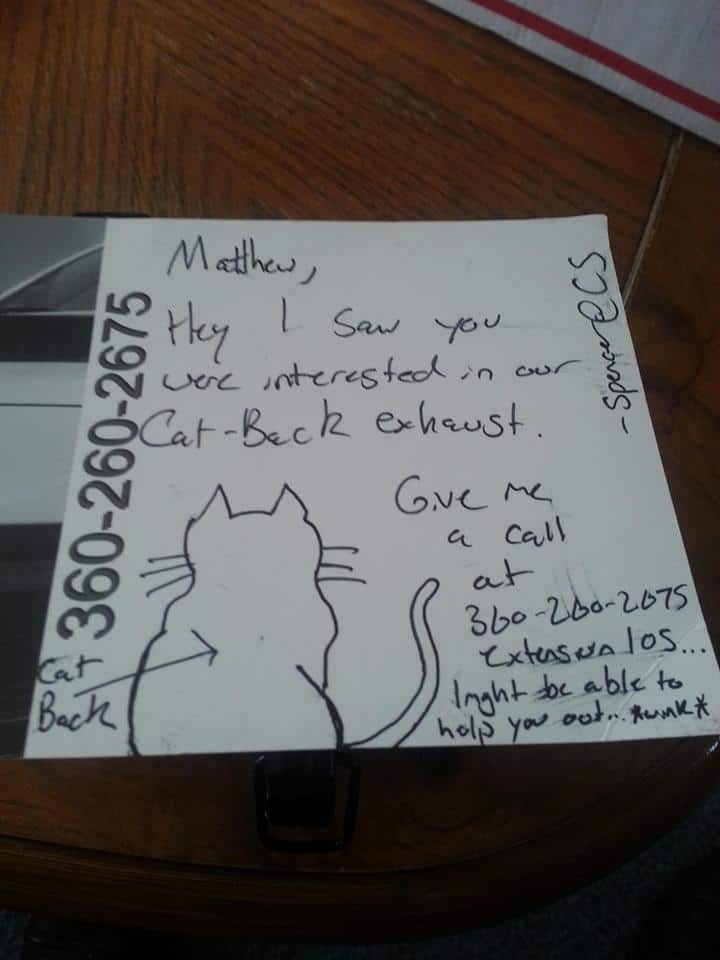 Matthew,
Hey I saw you
were interested in our
Cat-Back exhaust.
Give me
a call
at
360-260-2675
extension 105...
I might be able to
help you out.. *wink*
-Spencer@CS
Cat
Back
360-260-2675